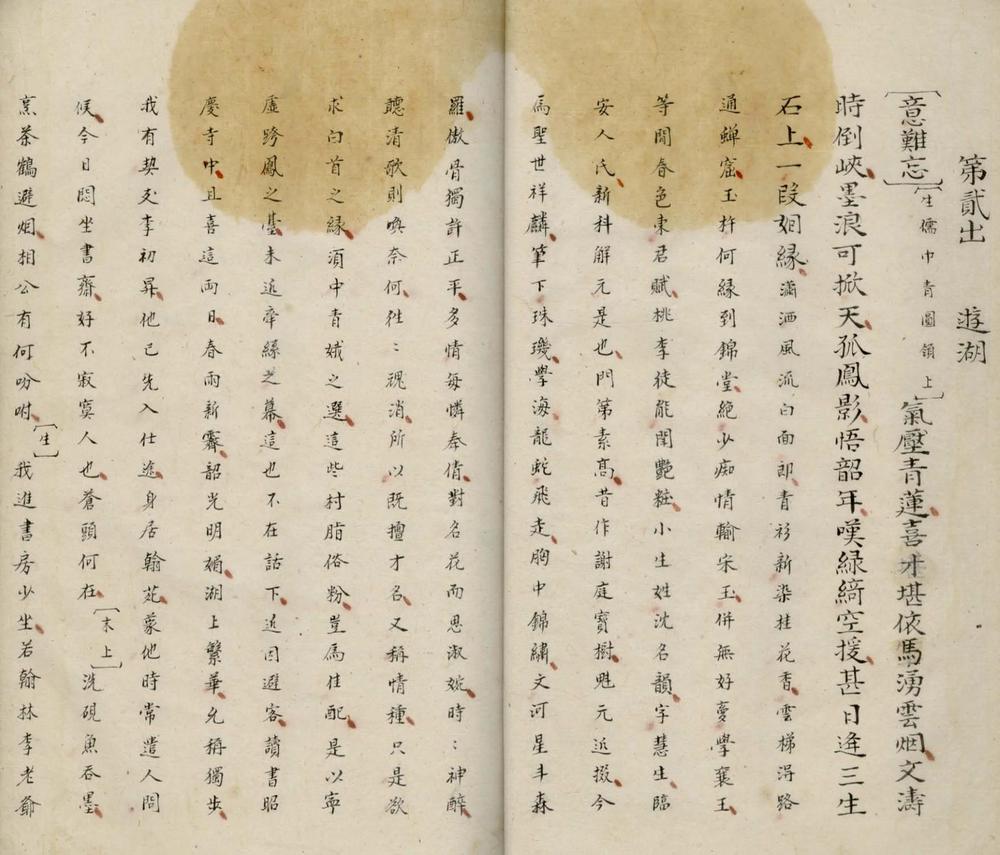 第貳出　　遊湖
［意難忘］［生儒巾青圓領上］氣壓青蓮喜才堪依馬湧雲烟文濤
時倒峽墨浪可掀天孤鳳影悟韶年嘆綠綺空援甚日逢三生
石上一段姻緣瀟洒風流白面郎青衫新染桂花香雲梯淂路
通蟬窟玉杵何緣到錦堂絶少痴情輸宋玉併無好夢學襄王
等閒春色東君賦桃李徒能閗艷粧小生姓沈名韻字慧生臨
安人氏新科解元是也門第素高昔作謝庭寶樹魁元近掇今
爲聖世祥麟筆下珠璣學海龍蛇飛走胸中錦繡文河星斗森
羅傲骨獨許正平多情每憐奉倩對名花而思淑婉時：神醉
聽清歌則喚奈何徃：魂消所以既擅才名又稱情種只是欲
求白首之緣須中青娥之選這些村脂俗粉豈爲佳配是以寧
虛跨鳳之臺未近牽絲之幕這也不在話下近因避客讀書昭
慶寺中且喜這兩日春雨新霽韶光明媚湖上繁華允稱獨步
我有契友李初昇他已先入仕進身居翰苑蒙他時常遣人問
候今日悶坐書齋好不寂寞人也蒼頭何在［末上］洗硯魚吞墨
烹茶鶴避烟相公有何吩咐［生］我進書房少坐若翰林李老爺